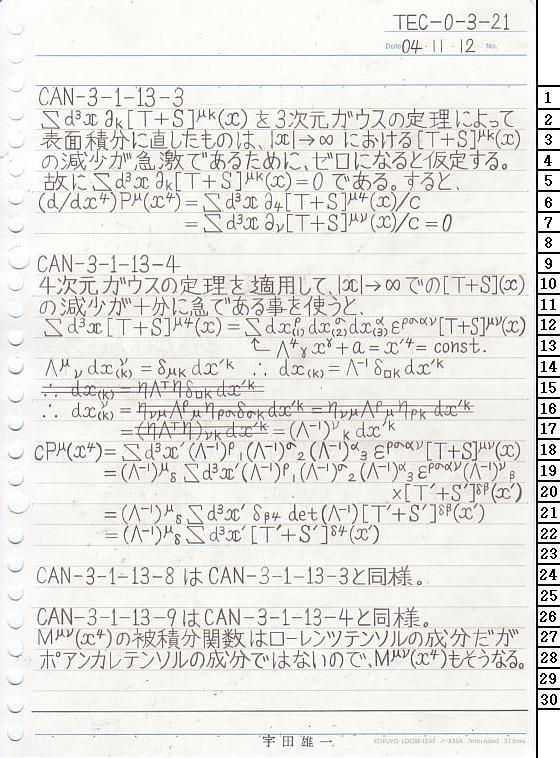 TEC-0-3-21
Date 04・11・12 No.
CAN-3-1-13-3
∑d³x ∂ₖ[T+S]^μk(x) を3次元ガウスの定理によって
表面積分に直したものは、|x|→∞ における [T+S]^μk(x)
の減少が急激であるために、ゼロになると仮定する。
故に ∑d³x ∂ₖ[T+S]^μk(x)=0 である。すると、
(d/dx⁴)P^μ(x⁴) = ∑d³x ∂₄[T+S]^μ4(x)/c
= ∑d³x ∂_ν[T+S]^μν(x)/c = 0
CAN-3-1-13-4
4次元ガウスの定理を適用して、|x|→∞での[T+S](x)
の減少が十分に急である事を使うと、
∑d³x[T+S]^μ4(x) = ∑dx^ρ_(1) dx^σ_(2) dx^α_(3) ε^ρσαν [T+S]^μν(x)
↑ Λ⁴_γ x^γ + a = x'⁴ = const.
Λ^μ_ν dx^ν_(k) = δ_μk dx'^k ∴ dx_(k) = Λ⁻¹ δ_□k dx'^k
∴ dx_(k) = ηΛ^Tη δ_□k dx'^k
∴ dx^ν_(k) = η_νμ Λ^ρ_μ η_ρσ δ_σk dx'^k = η_νμ Λ^ρ_μ η_ρk dx'^k
= (ηΛ^Tη)_νk dx'^k = (Λ⁻¹)^ν_k dx'^k
cP^μ(x⁴) = ∑d³x'(Λ⁻¹)^ρ_1 (Λ⁻¹)^σ_2 (Λ⁻¹)^α_3 ε^ρσαν [T+S]^μν(x)
= (Λ⁻¹)^μ_δ ∑d³x'(Λ⁻¹)^ρ_1 (Λ⁻¹)^σ_2 (Λ⁻¹)^α_3 ε^ρσαν (Λ⁻¹)^ν_β
×[T'+S']^δβ(x')
= (Λ⁻¹)^μ_δ ∑d³x' δ_β4 det(Λ⁻¹)[T'+S']^δβ(x')
= (Λ⁻¹)^μ_δ ∑d³x' [T'+S']^δ4(x')
CAN-3-1-13-8 は CAN-3-1-13-3と同様。
CAN-3-1-13-9 は CAN-3-1-13-4と同様。
M^μν(x⁴)の被積分関数はローレンツテンソルの成分だが
ポアンカレテンソルの成分ではないので、M^μν(x⁴)もそうなる。
宇田雄一
KOKUYO LOOSE-LEAF ノ-836A 7mm ruled 31 lines
1
2
3
4
5
6
7
8
9
10
11
12
13
14
15
16
17
18
19
20
21
22
23
24
25
26
27
28
29
30